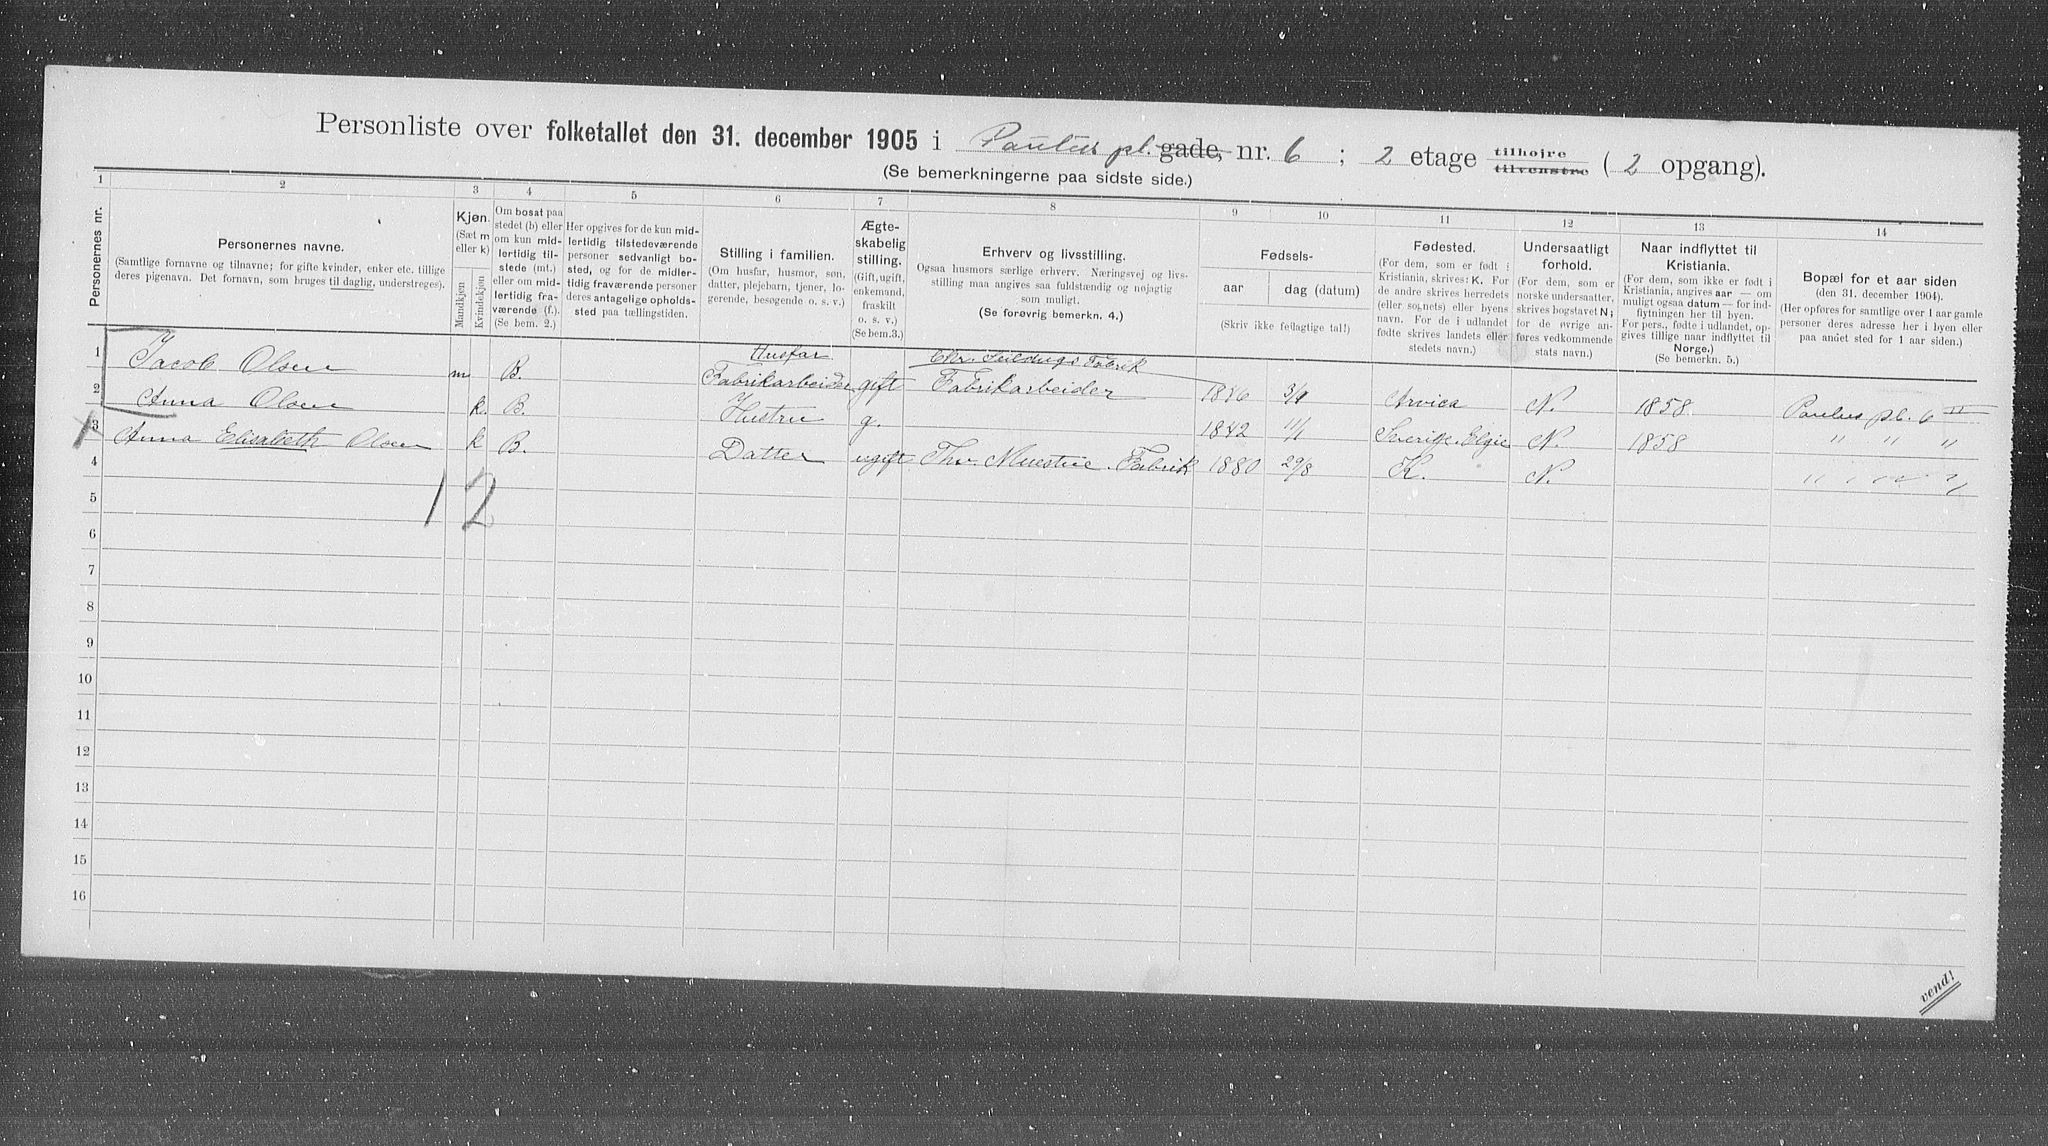 Personliste over folketallet den 31. december 1905 i Paulus pl. gade, nr. 6 ; 2 etage tilhøjre tilvenstre ( 2 opgang).
(Se bemerkningerne paa sidste side.)
1 2 3 4 5 6 7 8 9 10 11 12 13 14
Personernes nr.
Personernes navne.
(Samtlige fornavne og tilnavne; for gifte kvinder, enker etc. tillige
deres pigenavn. Det fornavn, som bruges til daglig, understreges).
Kjøn.
(Sæt m
eller k)
Mandkjøn
Kvindekjøn
Om bosat paa
stedet (b) eller
om kun mid-
lertidig til-
stede (mt.)
eller om mid-
lertidig fra-
værende (f.).
(Se bem. 2.)
Her opgives for de kun mid-
lertidig tilstedeværende
personer sedvanlig bo-
sted, og for de midler-
tidig fraværende personer
deres antagelige opholds-
sted paa tællingstiden.
Stilling i familien.
(Om husfar, husmor, søn,
datter, plejebarn, tjener, lo-
gerende, besøgende o. s. v.)
Ægte-
skabelig
stilling.
(Gift, ugift,
enkemand,
fraskilt
o. s. v.)
(Se bem.3.)
Erhverv og livsstilling.
Ogsaa husmors særlige erhverv. Næringsvej og livs-
stilling maa angives saa fuldstændig og nøjagtig
som muligt.
(Se forøvrig bemerkn. 4.)
Fødsels-
aar dag (datum)
(Skriv ikke feilagtige tal!)
Fødested.
(For dem, som er født i
Kristiania, skrives: K. For
de andre skrives herredets
(eller sognets) eller byens
navn. For de i udlandet
fødte skrives landets eller
stedets navn.)
Undersaatligt
forhold.
(For dem, som er
norske undersaatter,
skrives bogstavet N;
for de øvrige an-
føres vedkommende
stats navn.)
Naar indflyttet til
Kristiania.
(For dem, som ikke er født i
Kristiania, angives aar — om
muligt ogsaa datum — for ind-
flytningen her til byen.
For pers., fødte i udlandet, op-
gives tillige naar indflyttet til
Norge.)
(Se bemerkn. 5.)
Bopæl for et aar siden
(den 31. december 1904).
(Her opføres for samtlige over 1 aar gamle
personer deres adresse her i byen eller
paa andet sted for 1 aar siden.)
1 Jacob Olsen m B. Husfar Fabrikarbeider gift Chr. Fabrik Fabrikarbeider 1846 Arvica N. 1858 Paulus pl. 6 II
2 Anna Olsen k. B. Hustru g. 1842 11/1 N. 1858 " " "
3 Anna Elisabeth Olsen k B. Datter ugift Fabrik 1880 29/8 K. N. " " " "
4
12
5
6
7
8
9
10
11
12
13
14
15
16
vend!